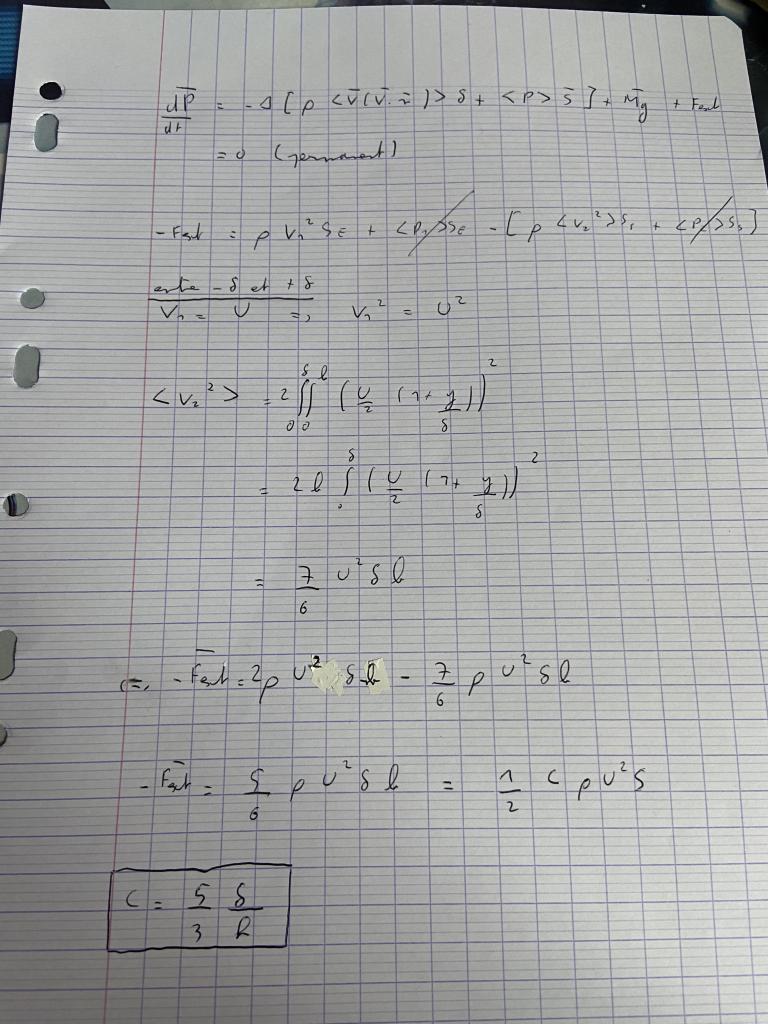 dP̅/dt = -Δ [ ρ <v̅(v̅.n̅)> S + <P> S̅ ] + M̅g + Fext
= 0 (permanent)
- Fext = ρ V₁² SE + <P₁>SE - [ ρ <V₂²>Ss + <Ps>Ss ]
entre -δ et +δ
V₁ = U => V₁² = U²
<V₂²> = 2 ∫₀^δ ∫₀^l (U/2 (1 + y/δ))²
= 2 l ∫₀^δ (U/2 (1 + y/δ))²
= 7/6 U² δ l
<=> - F̅ext = 2ρ U² δ l - 7/6 ρ U² δ l
- F̅ext = 5/6 ρ U² δ l = 1/2 C ρ U² S
C = 5/3 δ/R